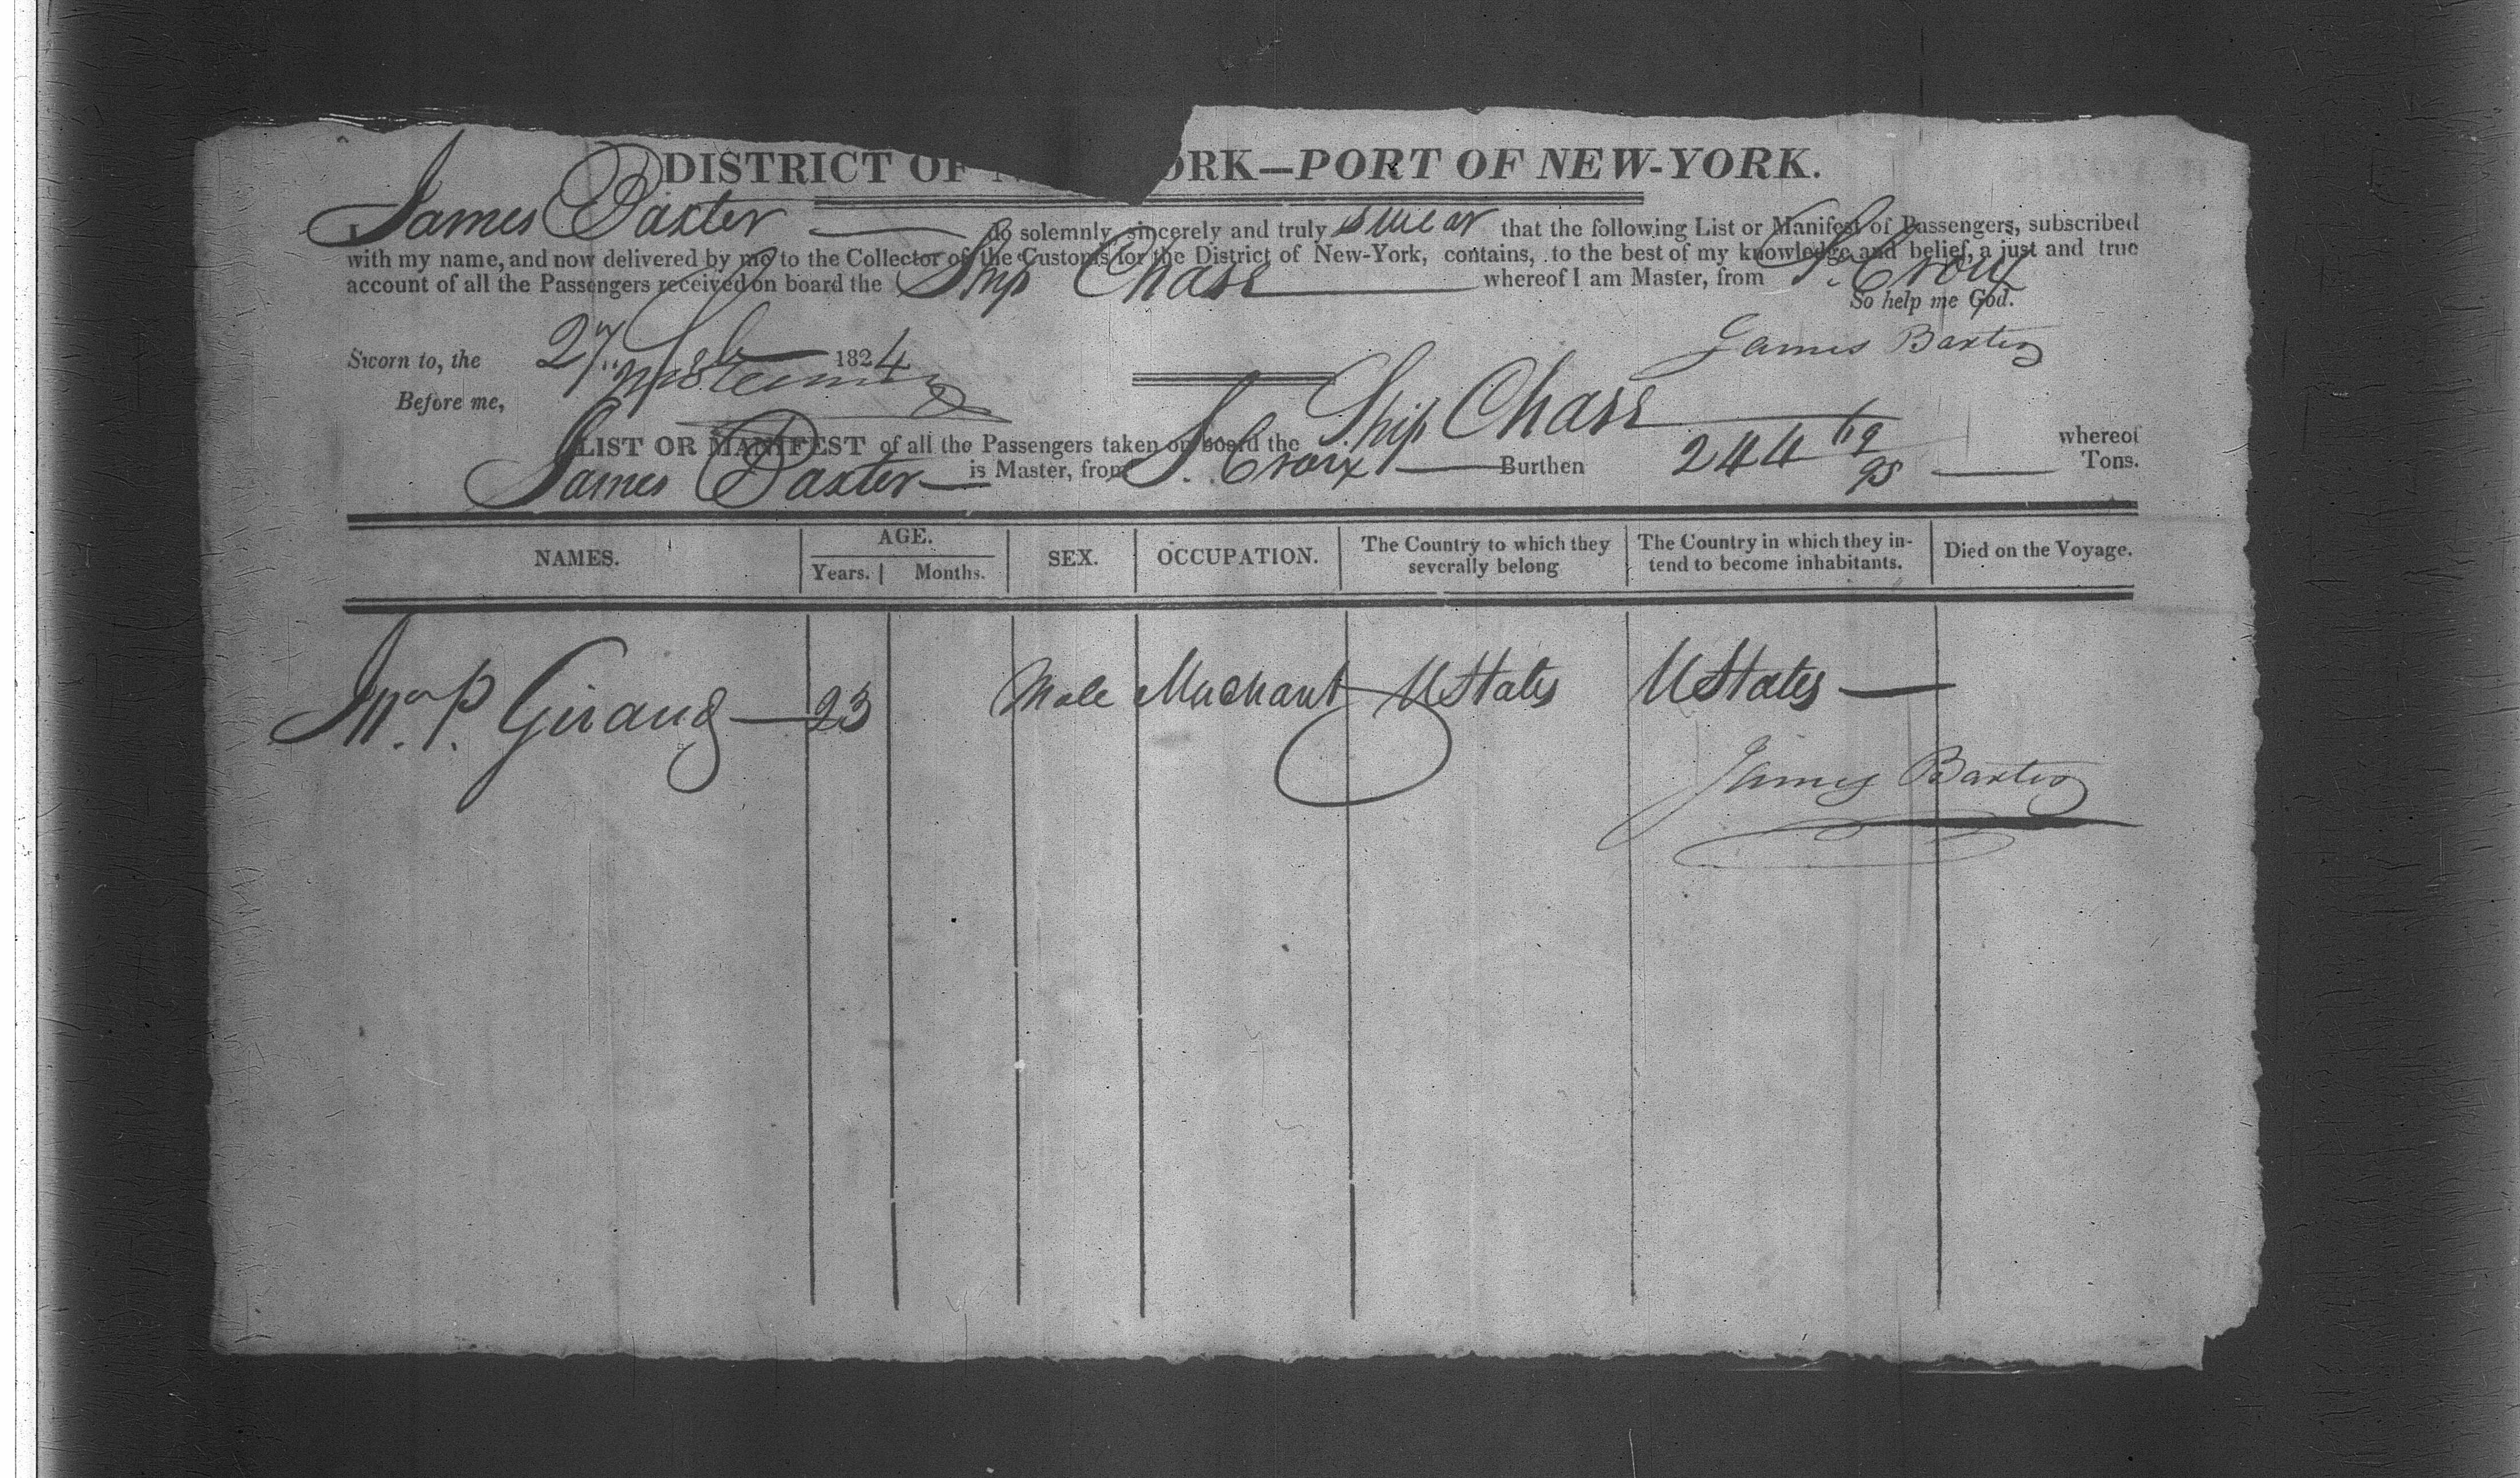 DISTRICT OF N ORK—PORT OF NEW-YORK.
I James Baxter do solemnly, sincerely and truly swear that the following List or Manifest of Passengers, subscribed
with my name, and now delivered by me to the Collector of the Customs for the District of New-York, contains, to the best of my knowledge and belief, a just and true
account of all the Passengers received on board the Ship Chase whereof I am Master, from St. Croix
So help me God.
Sworn to, the 27 Feb 1824 James Baxter
Before me,
LIST OR MANIFEST of all the Passengers taken on board the Ship Chase whereof
James Baxter is Master, from St. Croix Burthen 244 Tons.
NAMES. AGE. SEX. OCCUPATION. The Country to which they severally belong The Country in which they in-tend to become inhabitants. Died on the Voyage.
Years. Months.
P. Giraud 23 Male Merchant U States U States
James Baxter